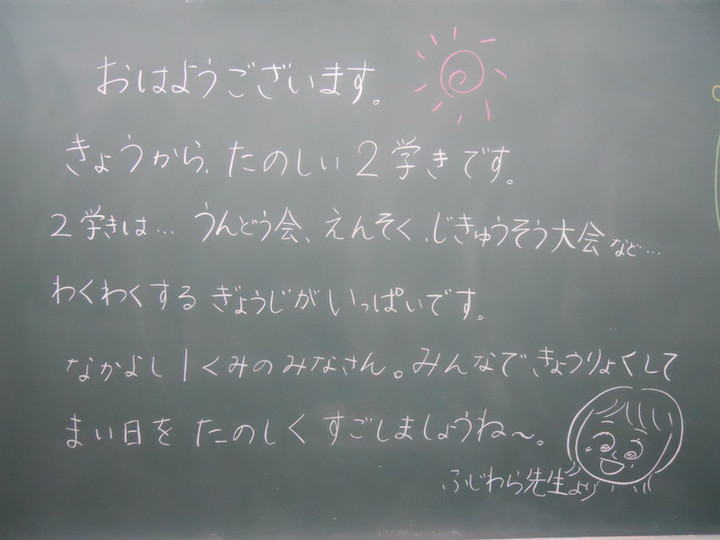 おはようございます。
きょうから、たのしい2学きです。
2学きは…うんどう会、えんそく、じきゅうそう大会など…
わくわくするぎょうじがいっぱいです。
なかよし1くみのみなさん。みんなできょうりょくして
まい日をたのしくすごしましょうね～。
ふじわら先生より